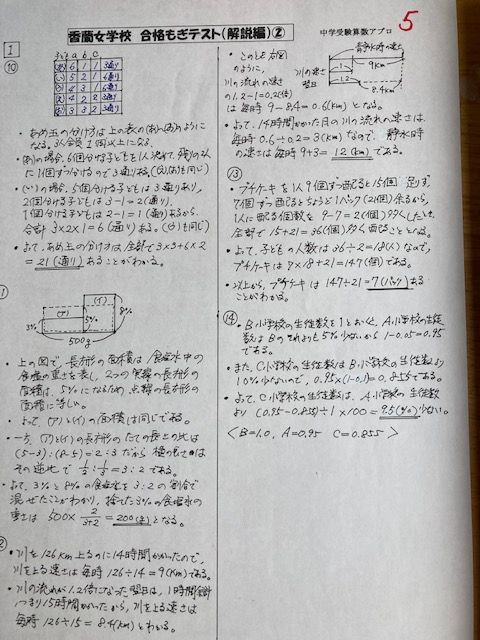 香蘭女学校 合格もぎテスト(解説編)②
中学受験算数アプロ
5
1
⑩
子ども a b C
(あ) 6 1 1 3通り
(い) 5 2 1 6通り
(う) 4 3 1 6通り
(え) 4 2 2 3通り
(お) 3 3 2 3通り
・あめ玉の分け方は上の表の(あ)~(お)のように
なる。3人全員1個以上になる
・(あ)の場合、6個分ける子どもを1人決めて、残りの2人
に1個ずつ分けるので3通りある(え)(お)も同じ)
・(い)の場合、5個分ける子どもは3通りあり、
2個分ける子どもは3-1=2(通り)、
1個分ける子どもは2-1=1(通り)あるから、
合計3×2×1=6(通り)ある。(う)も同じ)
・よって、あめ玉の分け方は全部で3×3+6×2
=21(通り)あることがわかる。
(ア)
(イ)
3%
5%
8%
500g
・上の図で、長方形の面積は食塩水中の
食塩の重さを表し、2つの実線の長方形の
面積は、5%になるため点線の長方形の
面積に等しい。
・よって、(ア)と(イ)の面積は同じである。
・一方、(ア)と(イ)の長方形のたての長さの比は
(5-3):(8-5)=2:3だから 横の長さは
その逆比で 1/2:1/3=3:2である。
・よって、3%と8%の食塩水を3:2の割合で
混ぜたことがわかり、捨てた3%の食塩水の
重さは 500×2/(3+2)=200(g)となる。
・川を126km上るのに14時間かかったので、
川を上る速さは毎時126÷14=9(km)である。
・川の流れが1.2倍になった翌日は、1時間余計
つまり15時間かかったから、川を上る速さは
毎時126÷15=8.4(km)とわかる。
・このとき右図
のように、
川の流れの速さ
の1.2-1=0.2(倍)
は毎時9-8.4=0.6(km)となる。
静水時の速さ
川の速さ
1
9km
翌日
1.2
8.4km
・よって、14時間かかった日の川の流れの速さは、
毎時0.6÷0.2=3(km)なので、静水時
の速さは毎時9+3=12(km)である。
⑬
・プチケーキを1人9個ずつ配ると15個足りず、
7個ずつ配るとちょうど1パック(21個)余るから、
1人に配る個数を9-7=2(個)少なくしたとき、
全部で15+21=36(個)少なく配ることとなる。
・よって、子どもの人数は36÷2=18(人)なので、
プチケーキは7×18+21=147(個)である。
・以上から、プチケーキは147÷21=7(パック)ある
ことがわかる。
⑭
・B小学校の生徒数を1とおくと、A小学校の生徒
数はBのそれより5%少ないから1-0.05=0.95
である。
・また、C小学校の生徒数はB小学校の生徒数より
10%少ないので、0.95×(1-0.1)=0.855である。
・よって、C小学校の生徒数は、A小学校の生徒数
より(0.95-0.855)÷1×100=9.5(%)少ない。
<B=1.0, A=0.95 C=0.855>